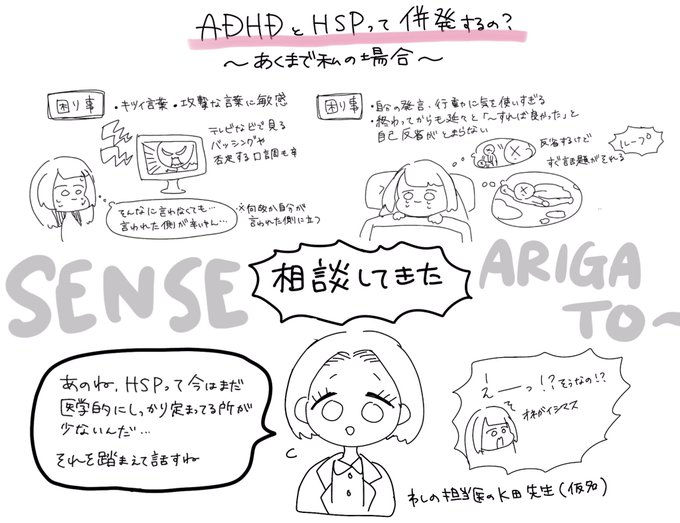 ADHDとHSPって併発するの?
〜あくまで私の場合〜
困り事
・キツイ言葉・攻撃な言葉に敏感
テレビなどで見る
バッシングや
否定する口調も辛
そんなに言わなくても…
言われた側が辛いやん…
※何故か自分が
言われた側に立つ
困り事
・自分の発言、行動に気を使いすぎる
・終わってからも延々と「〜すれば良かった」と
自己反省がとまらない
反省するけど
すぐ話題がそれる
ループ
SENSE
相談してきた
ARIGA
TO〜
あのね、HSPって今はまだ
医学的にしっかり定まってる所が
少ないんだ…
それを踏まえて話すね
えーーっ!?そうなの!?
オネガイシマス
わしの担当医のK田先生(仮名)